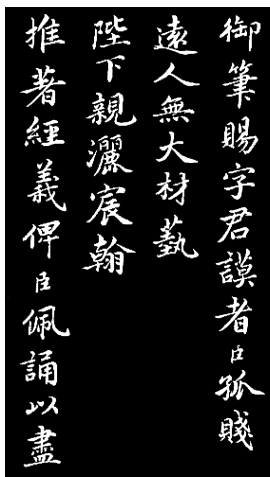 御筆賜字君謨者臣孤賤
遠人無大材藝
陛下親灑宸翰
推著經義俾臣佩誦以盡